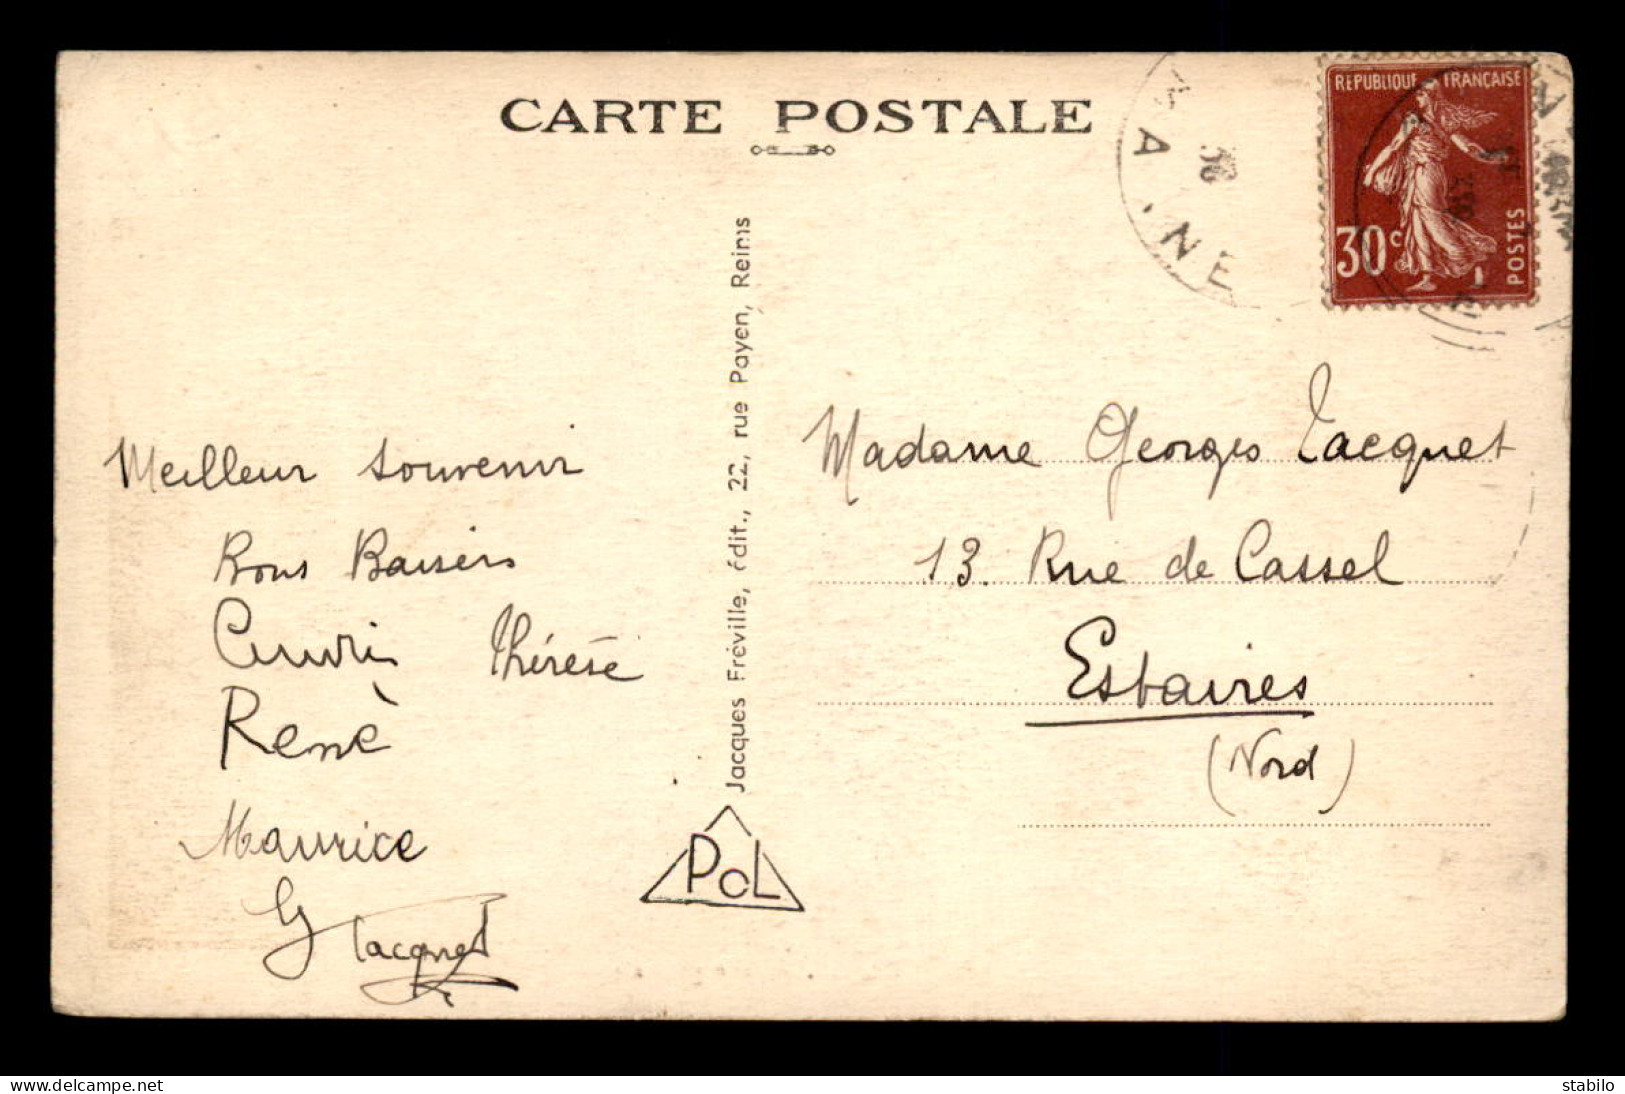 CARTE POSTALE
RÉPUBLIQUE FRANÇAISE
30c
POSTES
A . NE
36
Jacques Fréville, édit., 22, rue Payen, Reims
Meilleur souvenir
Bons Baisers
Thérèse
René
Maurice
G Jacquet
Madame Georges Jacquet
13. Rue de Cassel
Estaires
(Nord)
PoL
www.delcampe.net
stabilo